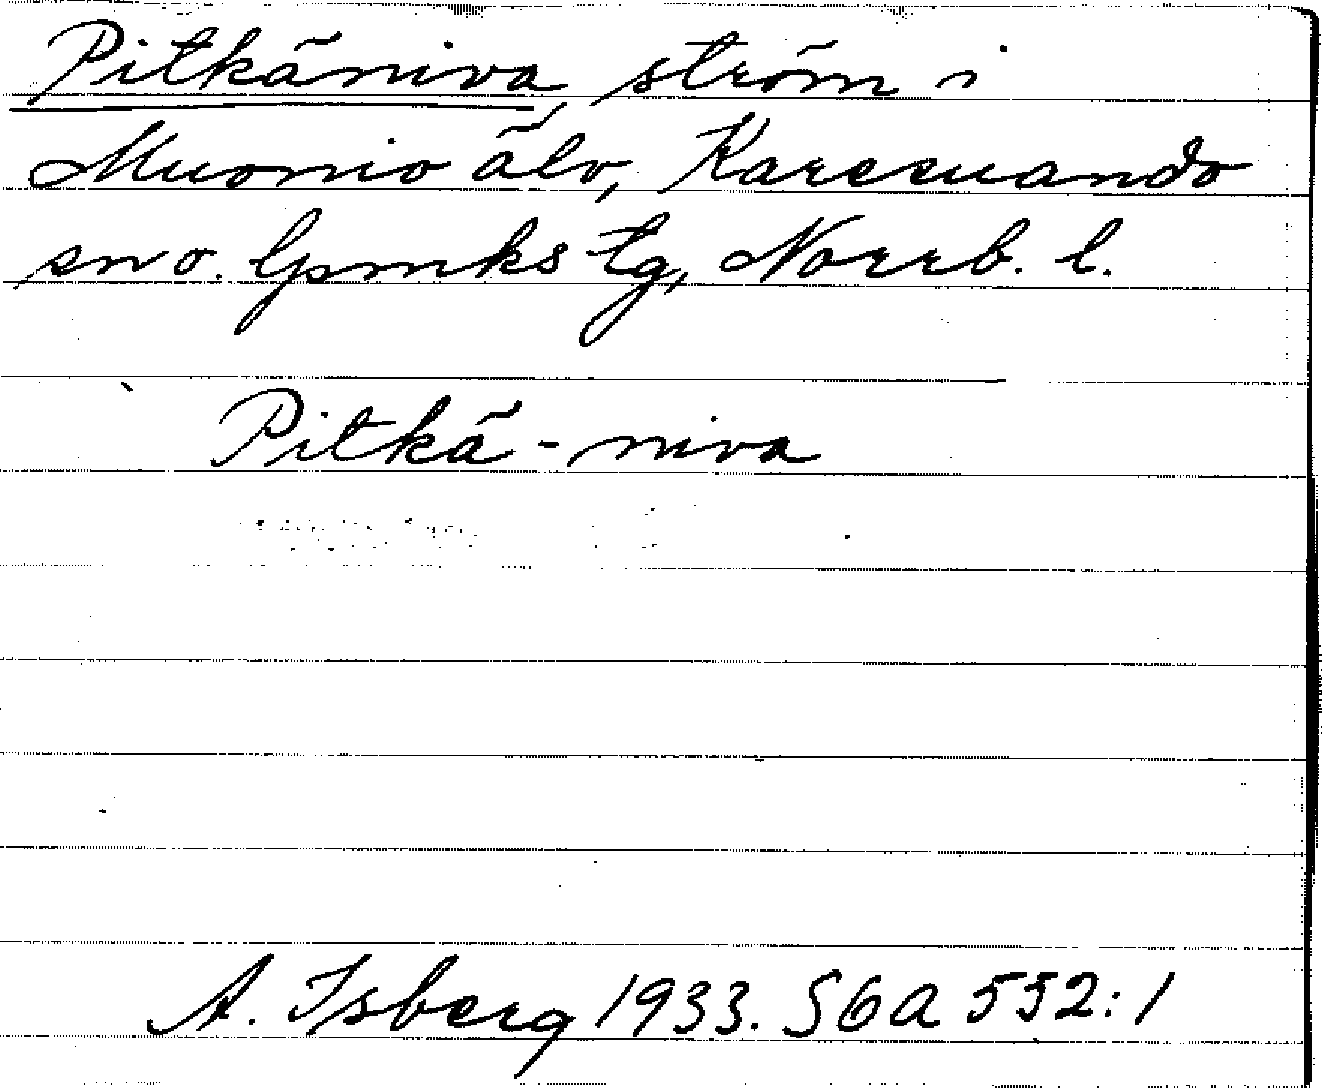 Pitkäniva, ström i
Muonio älv, Karesuando
sn o. lpmks tg, Norrb. l.
Pitkä-niva
A. Isberg 1933. SGA 552:1